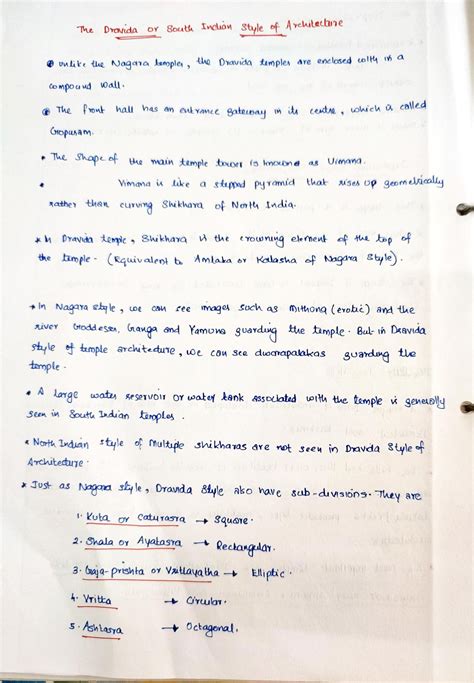 The Dravida or South Indian Style of Architecture
unlike the Nagara temples, the Dravida temples are enclosed with in a
compound wall.
The front hall has an entrance gateway in its centre, which is called
Gopuram.
• The shape of the main temple tower is known as Vimana.
• Vimana is like a stepped pyramid that rises up geometrically
rather than curving Shikhara of North India.
* In Dravida temple, Shikhara is the crowning element of the top of
the temple. (Equivalent to Amlaka or Kalasha of Nagara Style).
* In Nagara style, we can see images such as mithuna (erotic) and the
river Goddesses, Ganga and Yamuna guarding the temple. But in Dravida
style of temple architecture, we can see dwarapalakas guarding the
temple.
• A large water reservoir or water tank associated with the temple is generally
seen in South Indian temples.
* North Indian style of Multiple shikharas are not seen in Dravida Style of
Architecture.
* Just as Nagara style, Dravida Style also have sub-divisions. They are
1. Kuta or Caturasra → Square.
2. Shala or Ayatasra → Rectangular.
3. Gaja-prishta or Vrittayatha → Elliptic.
4. Vritta → Circular.
5. Ashtasra → Octagonal.